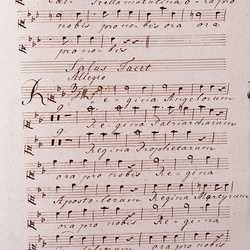 Stella matutina ora pro
nobis pro nobis ora ora
pro nobis
Solus Tacet
Allegro
Regina Angelorum
Regina Patriarcharum
Regina Prophetarum
ora pro nobis Regina
Apostolorum Regina Martyrum
ora pro nobis Regina
ora pro nobis